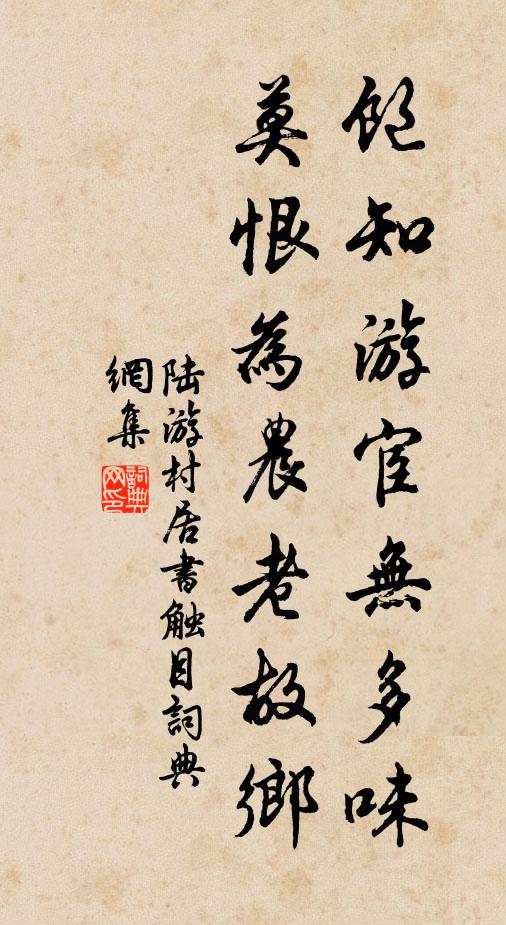 飽知游宦無多味
莫恨為農老故鄉
陸游村居書触目詞典
網集
詞典
网印